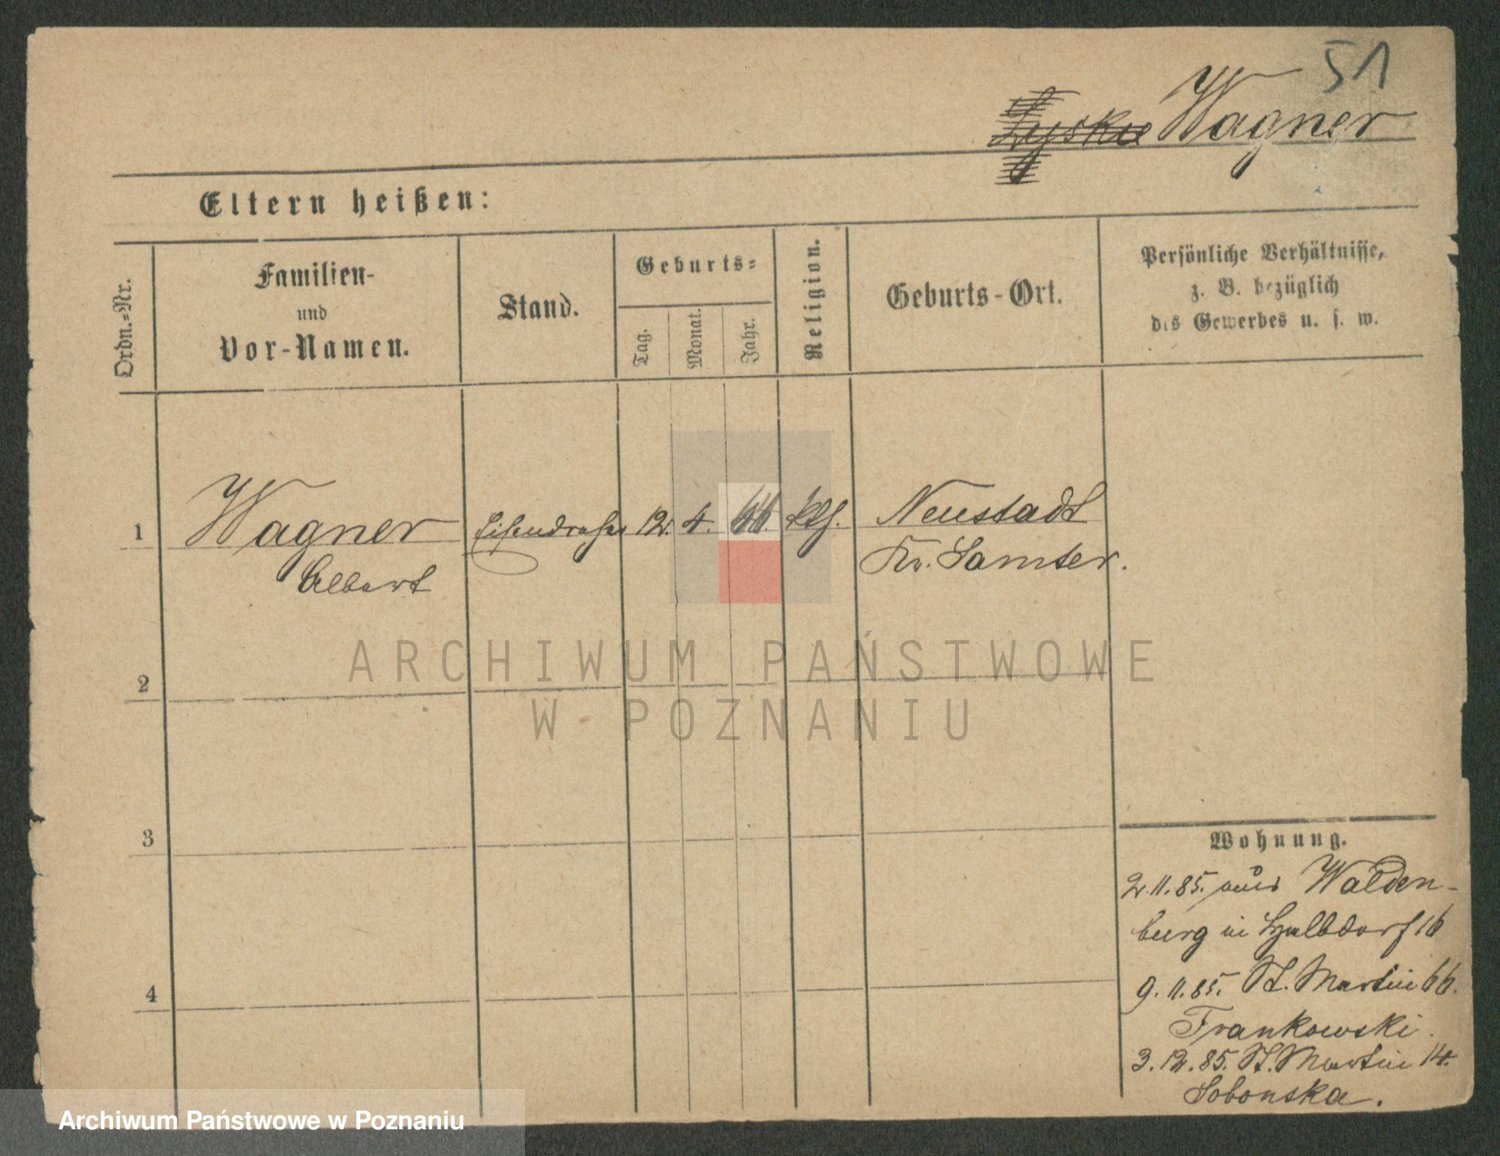 51
Lyskie Wagner
Eltern heißen:
Ordn.-Nr.
Familien-
und
Vor-Namen.
Stand.
Geburts-
Tag.
Monat.
Jahr.
Religion.
Geburts-Ort.
Persönliche Verhältnisse,
z. B. bezüglich
des Gewerbes u. s. w.
1 Wagner Eisendreher 12. 4. 66. kth. Neustadt
Albert Kr. Samter.
2
3
4
Wohnung.
2.11.85. aus Walden-
burg in Halbdorf 16
9.11.85. St. Martin 66.
Frankowski.
3.12.85. St. Martin 14.
Sobonska.
ARCHIWUM PAŃSTWOWE
W POZNANIU
Archiwum Państwowe w Poznaniu